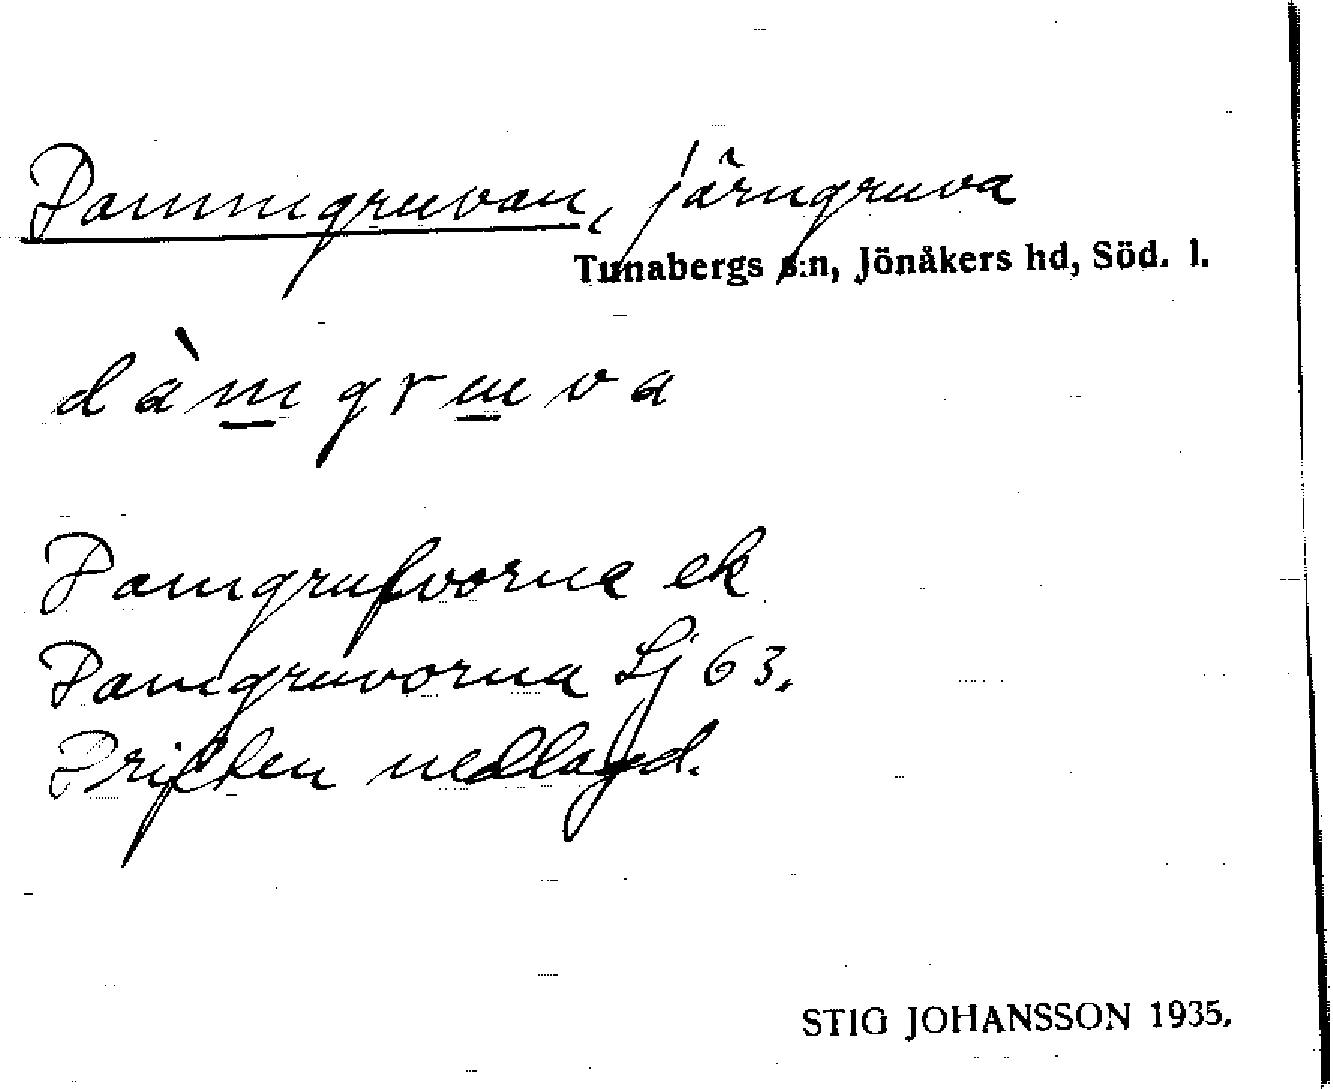 Dammgruvan, järngruva
Tunabergs s:n, Jönåkers hd, Söd. l.
dàmgruva
Damgrufvorna ek
Damgruvorna Lj 63.
Driften nedlagd.
STIG JOHANSSON 1935.